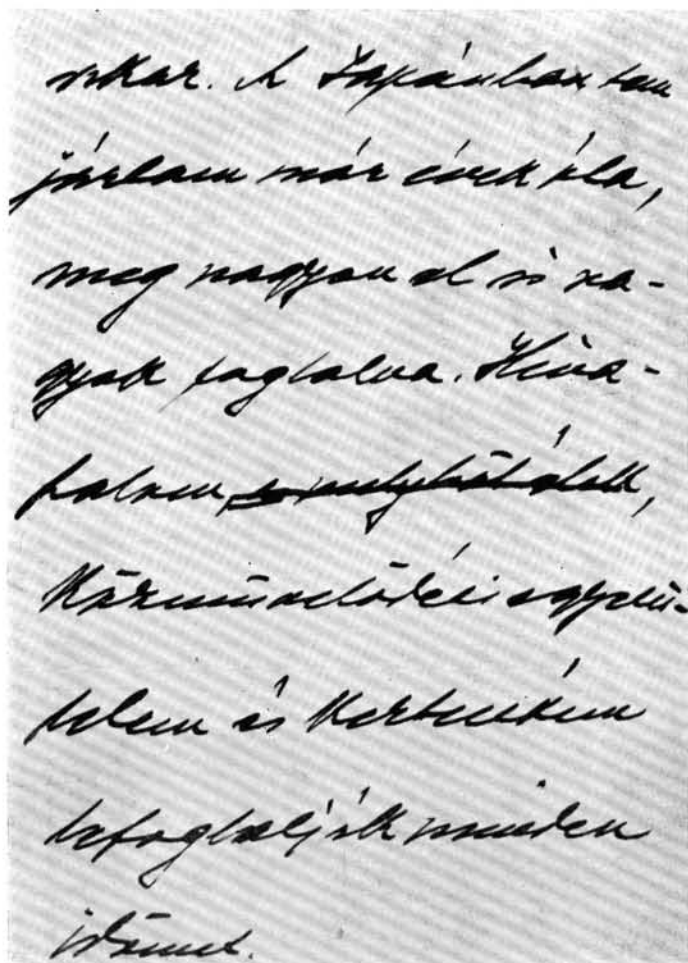 A Japánban sem
jártam már évek óta,
meg nagyon el is va-
gyok foglalva. Hiva-
talom, a melyből élek,
Közművelődési egyesü-
letem és kertecském
lefoglalják minden
időmet.